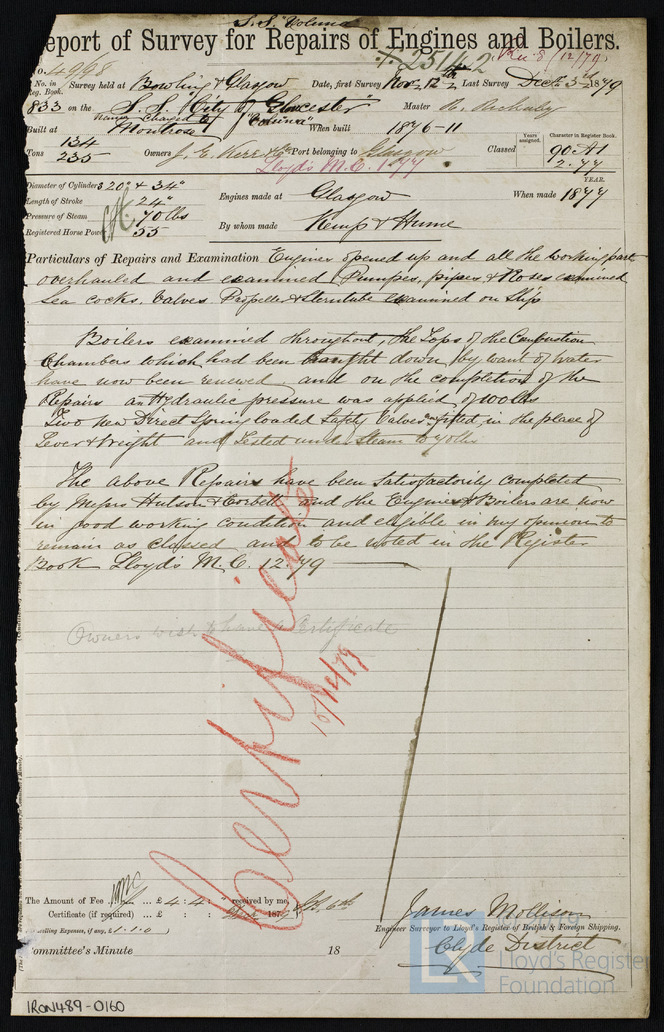 S.S. "Volma"
Report of Survey for Repairs of Engines and Boilers.
No. 4998 2514 Rec 8/12/79
No. in Reg. Book. Survey held at Bowling & Glasgow Date, first Survey Nov. 12th Last Survey Dec. 3rd 1879
833 on the S.S. "City of Gloucester" Master
Name changed to
Built at Montrose When built 1876-11
Tons 134
235
Owners J. E. Kerr & Co Port belonging to Glasgow Classed
Years assigned. Character in Register Book.
90.A1
2.77
Lloyd's M.C. 1.77
YEAR.
Diameter of Cylinders 20" & 34"
Length of Stroke 24"
Pressure of Steam 70 lbs
Registered Horse Power 55
Engines made at Glasgow When made 1877
By whom made Kemp & Hume
Particulars of Repairs and Examination Engines opened up and all the working parts
overhauled and examined, Pumps, pipes & Roses examined
Sea cocks, Valves. Propeller & Sterntube examined on Slip
Boilers examined throughout, the Tops of the Combustion
Chambers which had been brought down by want of water
have now been renewed, and on the completion of the
Repairs an Hydraulic pressure was applied of 100 lbs
Two new Direct Spring loaded Safety Valves fitted in the place of
Lever & Weight and Tested under Steam to 70 lbs
The above Repairs have been satisfactorily completed
by Messrs Hutson & Corbett and the Engines & Boilers are now
in good working condition and eligible in my opinion to
remain as classed and to be noted in the Register
Book Lloyd's M.C. 12.79
Owners wish to have a Certificate
Certificate
10/12/79
The Amount of Fee ... £ 4 : 4 : " received by me,
Certificate (if required) ... £ : : 187
Travelling Expenses, if any, £ 1.1.0
James Mollison
Engineer Surveyor to Lloyd's Register of British & Foreign Shipping.
Clyde District
Committee's Minute 18
© 2019
LR
Lloyd's Register
Foundation
IRON489-0160